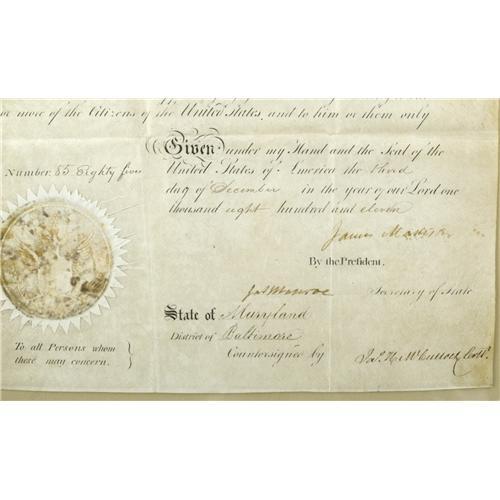 ve more of the Citizens of the United States, and to him or them only
Given under my Hand and the Seal of the
Number. 85 Eighty five
United States of America the third
day of December in the year of our Lord one
thousand eight hundred and eleven
James Madison
By the Prefident.
Jas Monroe Secretary of State
State of Maryland
District of Baltimore
To all Persons whom
these may concern.
Countersigned by Jas. H. McCulloch Collr.